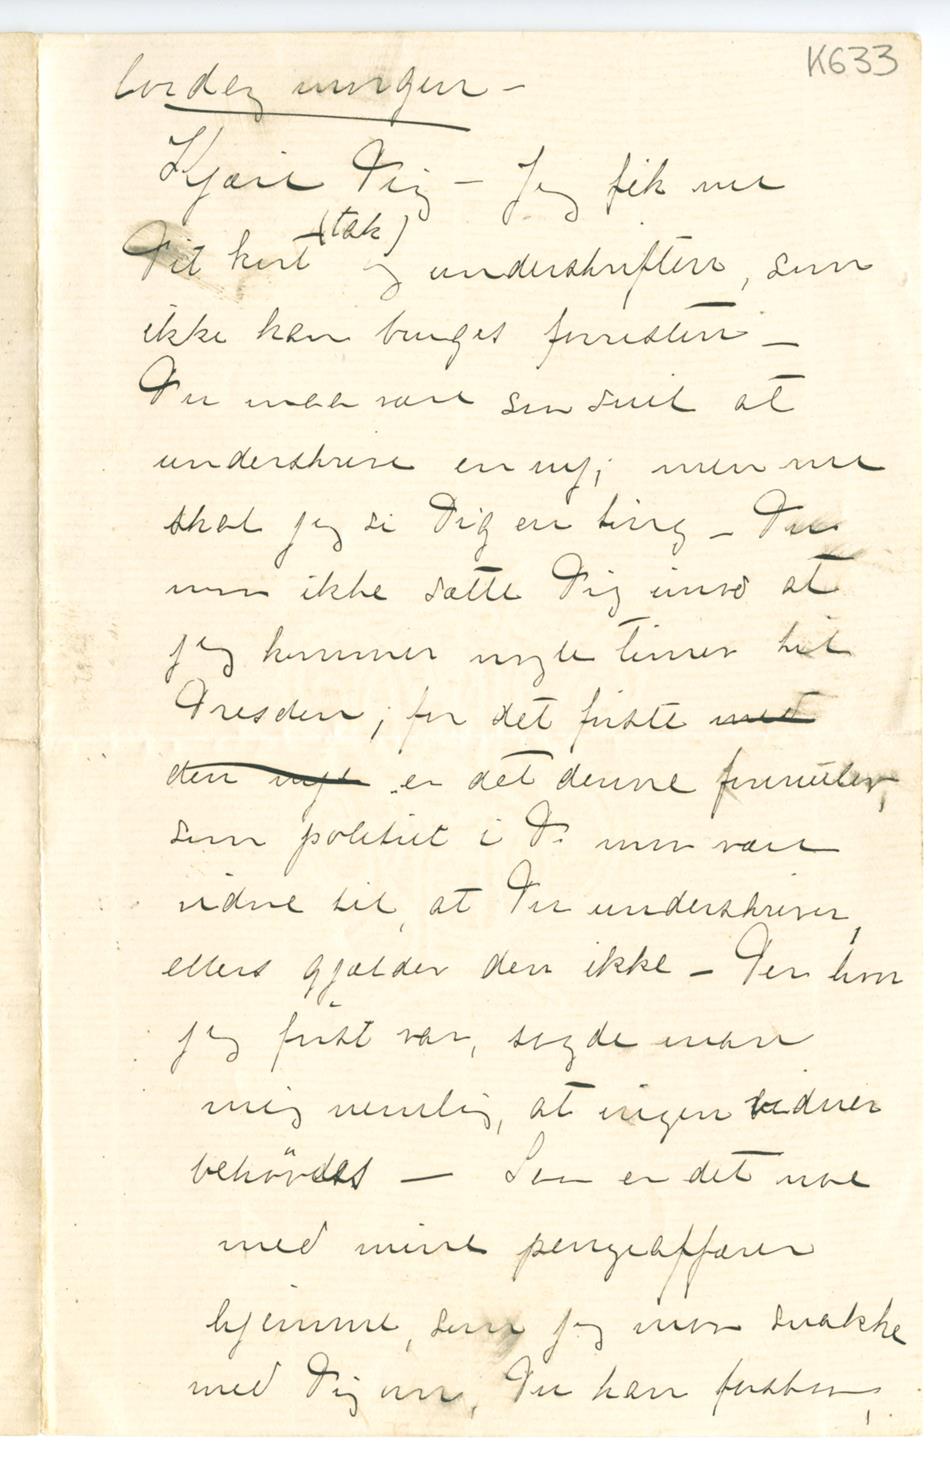 K633
lørdag morgen –
Kjære Dig – Jeg fik nu
(tak)
Dit kort og underskriften, som
ikke kan bruges forresten –
Du maa være saa snil at
underskrive en ny; men nu
skal jeg si Dig en ting – Du
maa ikke sætte Dig imod at
jeg kommer nogle timer til
Dresden; for det første med
den nye er det denne formular,
som politiet i D. maa være
vidne til, at Du underskriver,
ellers gjælder den ikke – Der hvor
jeg først var, sagde man
mig nemlig, at ingen vidner
behøvdes – Saa er det noe
med mine pengeaffærer
hjemme, som jeg maa snakke
med Dig om, Du kan forstaa,